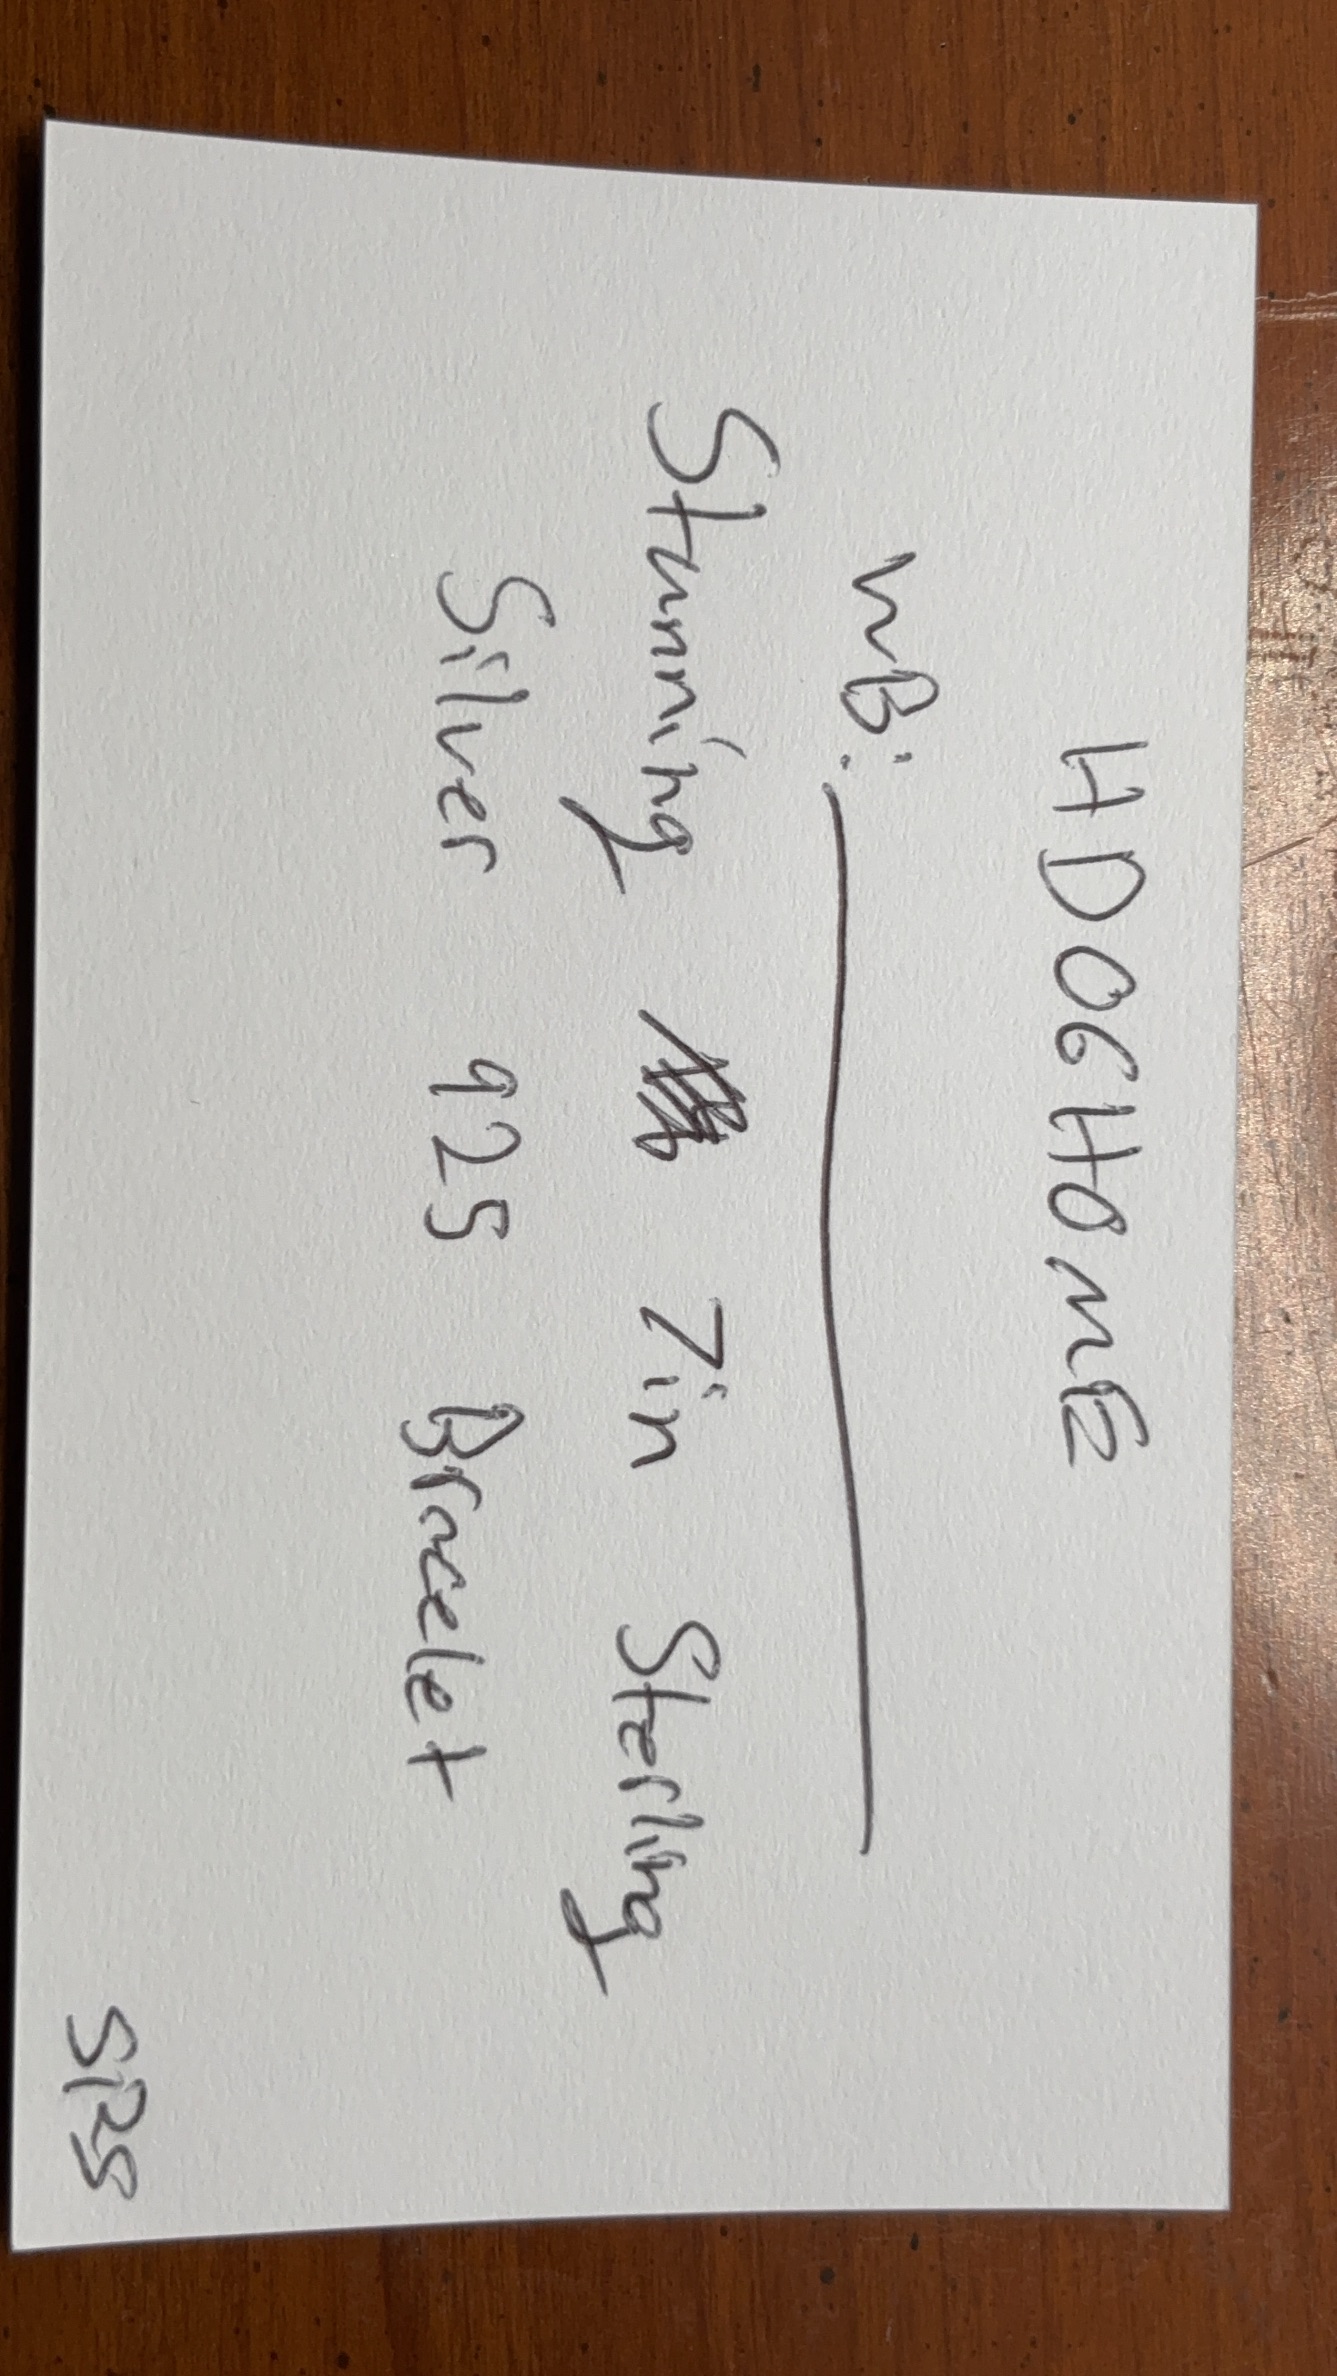 HDOGHOME
WB:
Stunning 7in Sterling
Silver 925 Bracelet